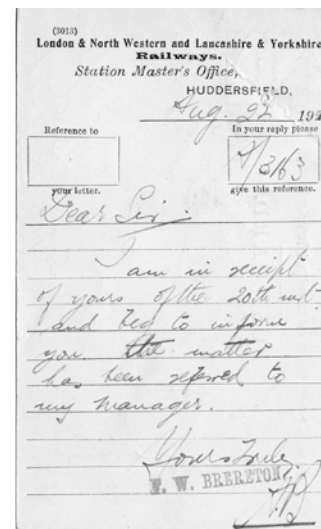 (3013)
London & North Western and Lancashire & Yorkshire
Railways.
Station Master's Office,
HUDDERSFIELD,
Aug. 22 192
Reference to
In your reply please
7/3163
your letter.
give this reference.
Dear Sir.
I am in receipt
of yours of the 20th inst
and beg to inform
you the matter
has been referred to
my manager.
Yours truly,
F. W. BRERETON,